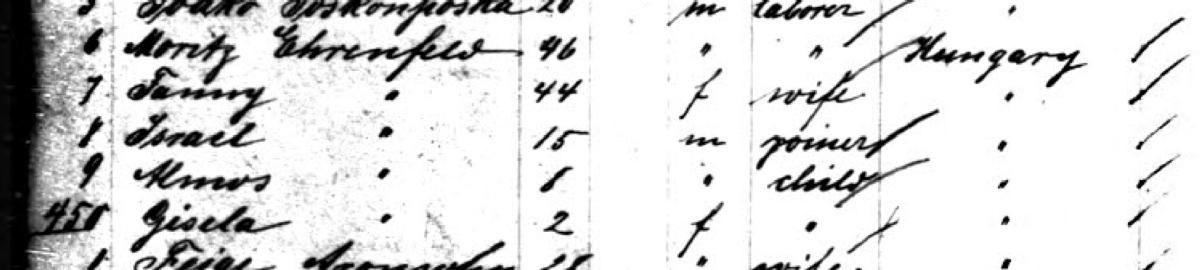 5 20 m laborer "
6 Moritz Ehrenfeld 46 " " Hungary /
7 Fanny " 44 f wife " /
8 Israel " 15 m joiner " /
9 " 8 " child " /
450 Gisela " 2 f " " /
1 Feige 28 " wife